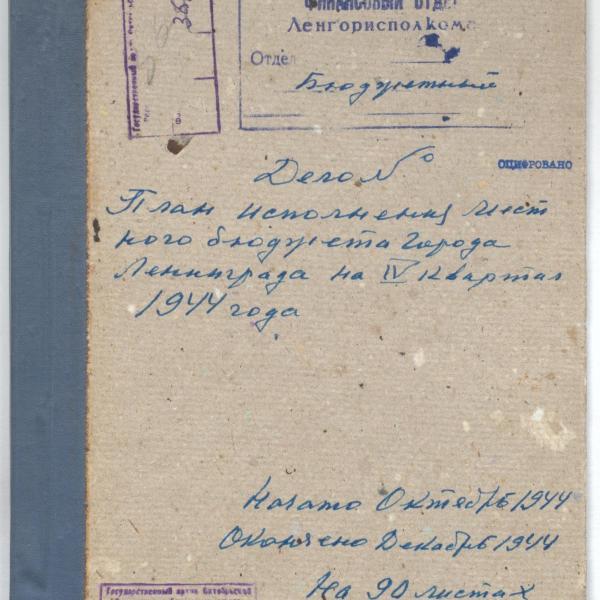 ФИНАНСОВЫЙ ОТДЕЛ
Ленгорисполкома
Отдел
Бюджетный
Государственный архив
ОЦИФРОВАНО
Дело №
План исполнения мест
ного бюджета города
Ленинграда на IV квартал
1944 года
Начато Октябрь 1944
Окончено Декабрь 1944
На 90 листах
Государственный архив Октябрьской